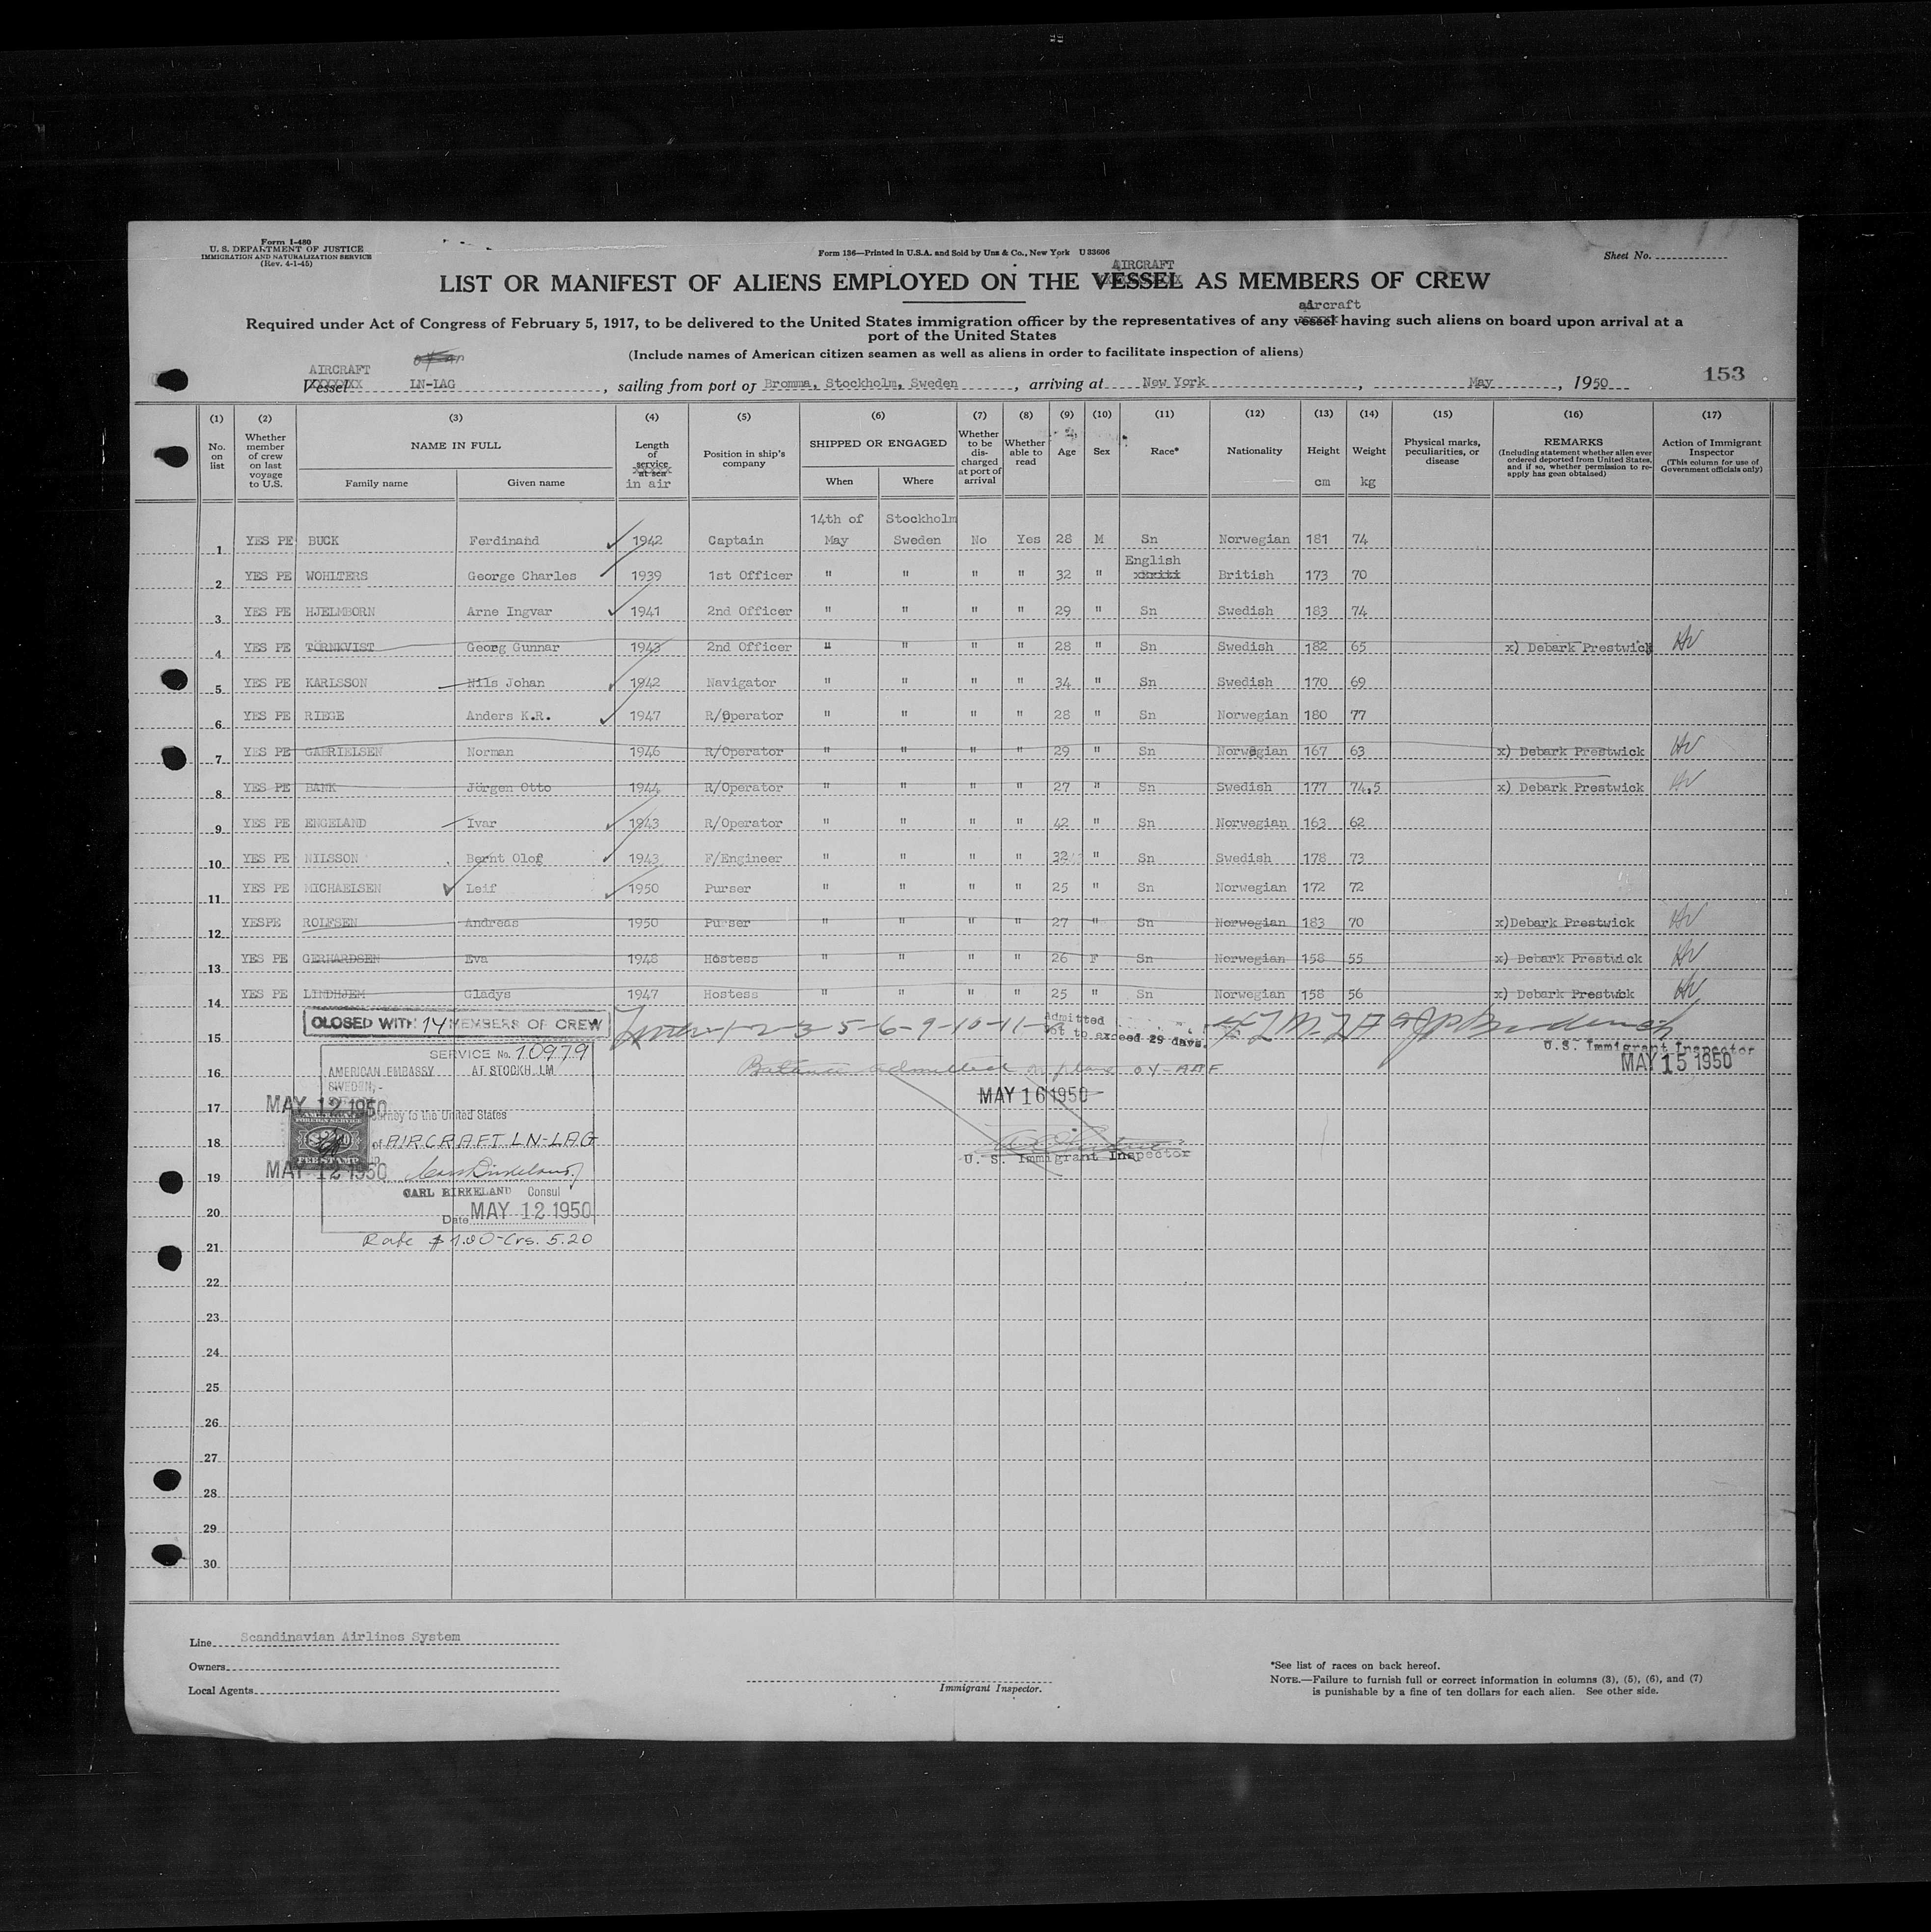 Form I-480
U. S. DEPARTMENT OF JUSTICE
IMMIGRATION AND NATURALIZATION SERVICE
(Rev. 4-1-45)
Form 136—Printed in U.S.A. and Sold by Unz & Co., New York U 33606
Sheet No.
AIRCRAFT
LIST OR MANIFEST OF ALIENS EMPLOYED ON THE VESSEL AS MEMBERS OF CREW
aircraft
Required under Act of Congress of February 5, 1917, to be delivered to the United States immigration officer by the representatives of any vessel having such aliens on board upon arrival at a
port of the United States
(Include names of American citizen seamen as well as aliens in order to facilitate inspection of aliens)
AIRCRAFT
Vessel LN-LAG, sailing from port of Bromma, Stockholm, Sweden, arriving at New York, May, 1950
153
(1) (2) (3) (4) (5) (6) (7) (8) (9) (10) (11) (12) (13) (14) (15) (16) (17)
No. on list
Whether member of crew on last voyage to U.S.
NAME IN FULL
Family name
Given name
Length of service at sea in air
Position in ship's company
SHIPPED OR ENGAGED
When
Where
Whether to be discharged at port of arrival
Whether able to read
Age
Sex
Race*
Nationality
Height cm
Weight kg
Physical marks, peculiarities, or disease
REMARKS
(Including statement whether alien ever ordered deported from United States, and if so, whether permission to reapply has been obtained)
Action of Immigrant Inspector
(This column for use of Government officials only)
14th of Stockholm
1 YES PE BUCK Ferdinand 1942 Captain May Sweden No Yes 28 M Sn Norwegian 181 74
English
2 YES PE WOHLTERS George Charles 1939 1st Officer " " " " 32 " British 173 70
3 YES PE HJELMBORN Arne Ingvar 1941 2nd Officer " " " " 29 " Sn Swedish 183 74
4 YES PE TÖRNKVIST Georg Gunnar 1943 2nd Officer " " " " 28 " Sn Swedish 182 65 x) Debark Prestwick
5 YES PE KARLSSON Nils Johan 1942 Navigator " " " " 34 " Sn Swedish 170 69
6 YES PE RIEGE Anders K.R. 1947 R/Operator " " " " 28 " Sn Norwegian 180 77
7 YES PE GABRIELSEN Norman 1946 R/Operator " " " " 29 " Sn Norwegian 167 63 x) Debark Prestwick
8 YES PE BANK Jörgen Otto 1944 R/Operator " " " " 27 " Sn Swedish 177 74,5 x) Debark Prestwick
9 YES PE ENGELAND Ivar 1943 R/Operator " " " " 42 " Sn Norwegian 163 62
10 YES PE NILSSON Bernt Olof 1943 F/Engineer " " " " 32 " Sn Swedish 178 73
11 YES PE MICHAELSEN Leif 1950 Purser " " " " 25 " Sn Norwegian 172 72
12 YESPE ROLFSEN Andreas 1950 Purser " " " " 27 " Sn Norwegian 183 70 x)Debark Prestwick
13 YES PE GERHARDSEN Eva 1948 Hostess " " " " 26 F Sn Norwegian 158 55 x) Debark Prestwick
14 YES PE LINDHJEM Gladys 1947 Hostess " " " " 25 " Sn Norwegian 158 56 x) Debark Prestwick
CLOSED WITH 14 MEMBERS OF CREW
1-2-3-5-6-9-10-11
Admitted
not to exceed 29 days.
U.S. Immigrant Inspector
MAY 15 1950
15
SERVICE No. 10979
AMERICAN EMBASSY AT STOCKHOLM
SWEDEN
16
Balance admitted on plane OY-AAF
MAY 16 1950
U. S. Immigrant Inspector
MAY 12 1950
17
journey to the United States
FOREIGN SERVICE
FEE STAMP
18
of AIRCRAFT LN-LAG
MAY 12 1950
19
CARL BIRKELAND Consul
20
Date MAY 12 1950
Rate $1.00-Crs. 5.20
21
22
23
24
25
26
27
28
29
30
Line Scandinavian Airlines System
Owners
Local Agents
Immigrant Inspector.
*See list of races on back hereof.
NOTE.—Failure to furnish full or correct information in columns (3), (5), (6), and (7)
is punishable by a fine of ten dollars for each alien. See other side.